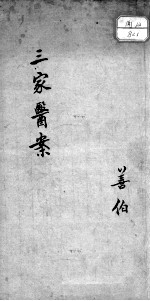 三家醫案
善伯